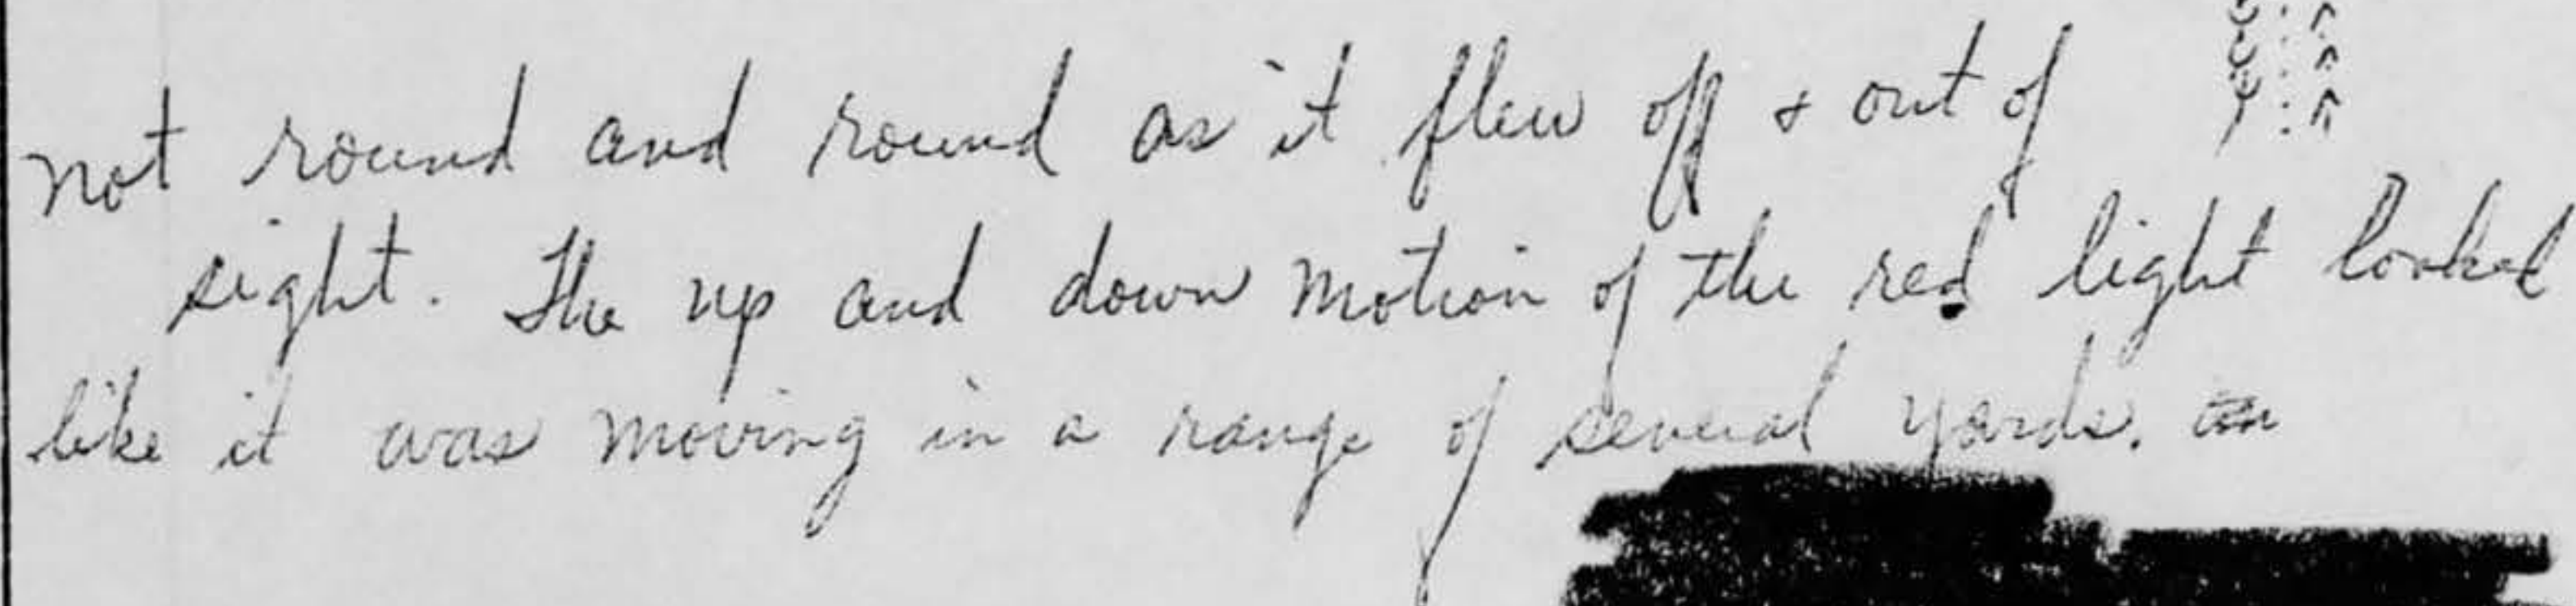 not round and round as it flew off & out of
sight. The up and down motion of the red light looked
like it was moving in a range of several yards.